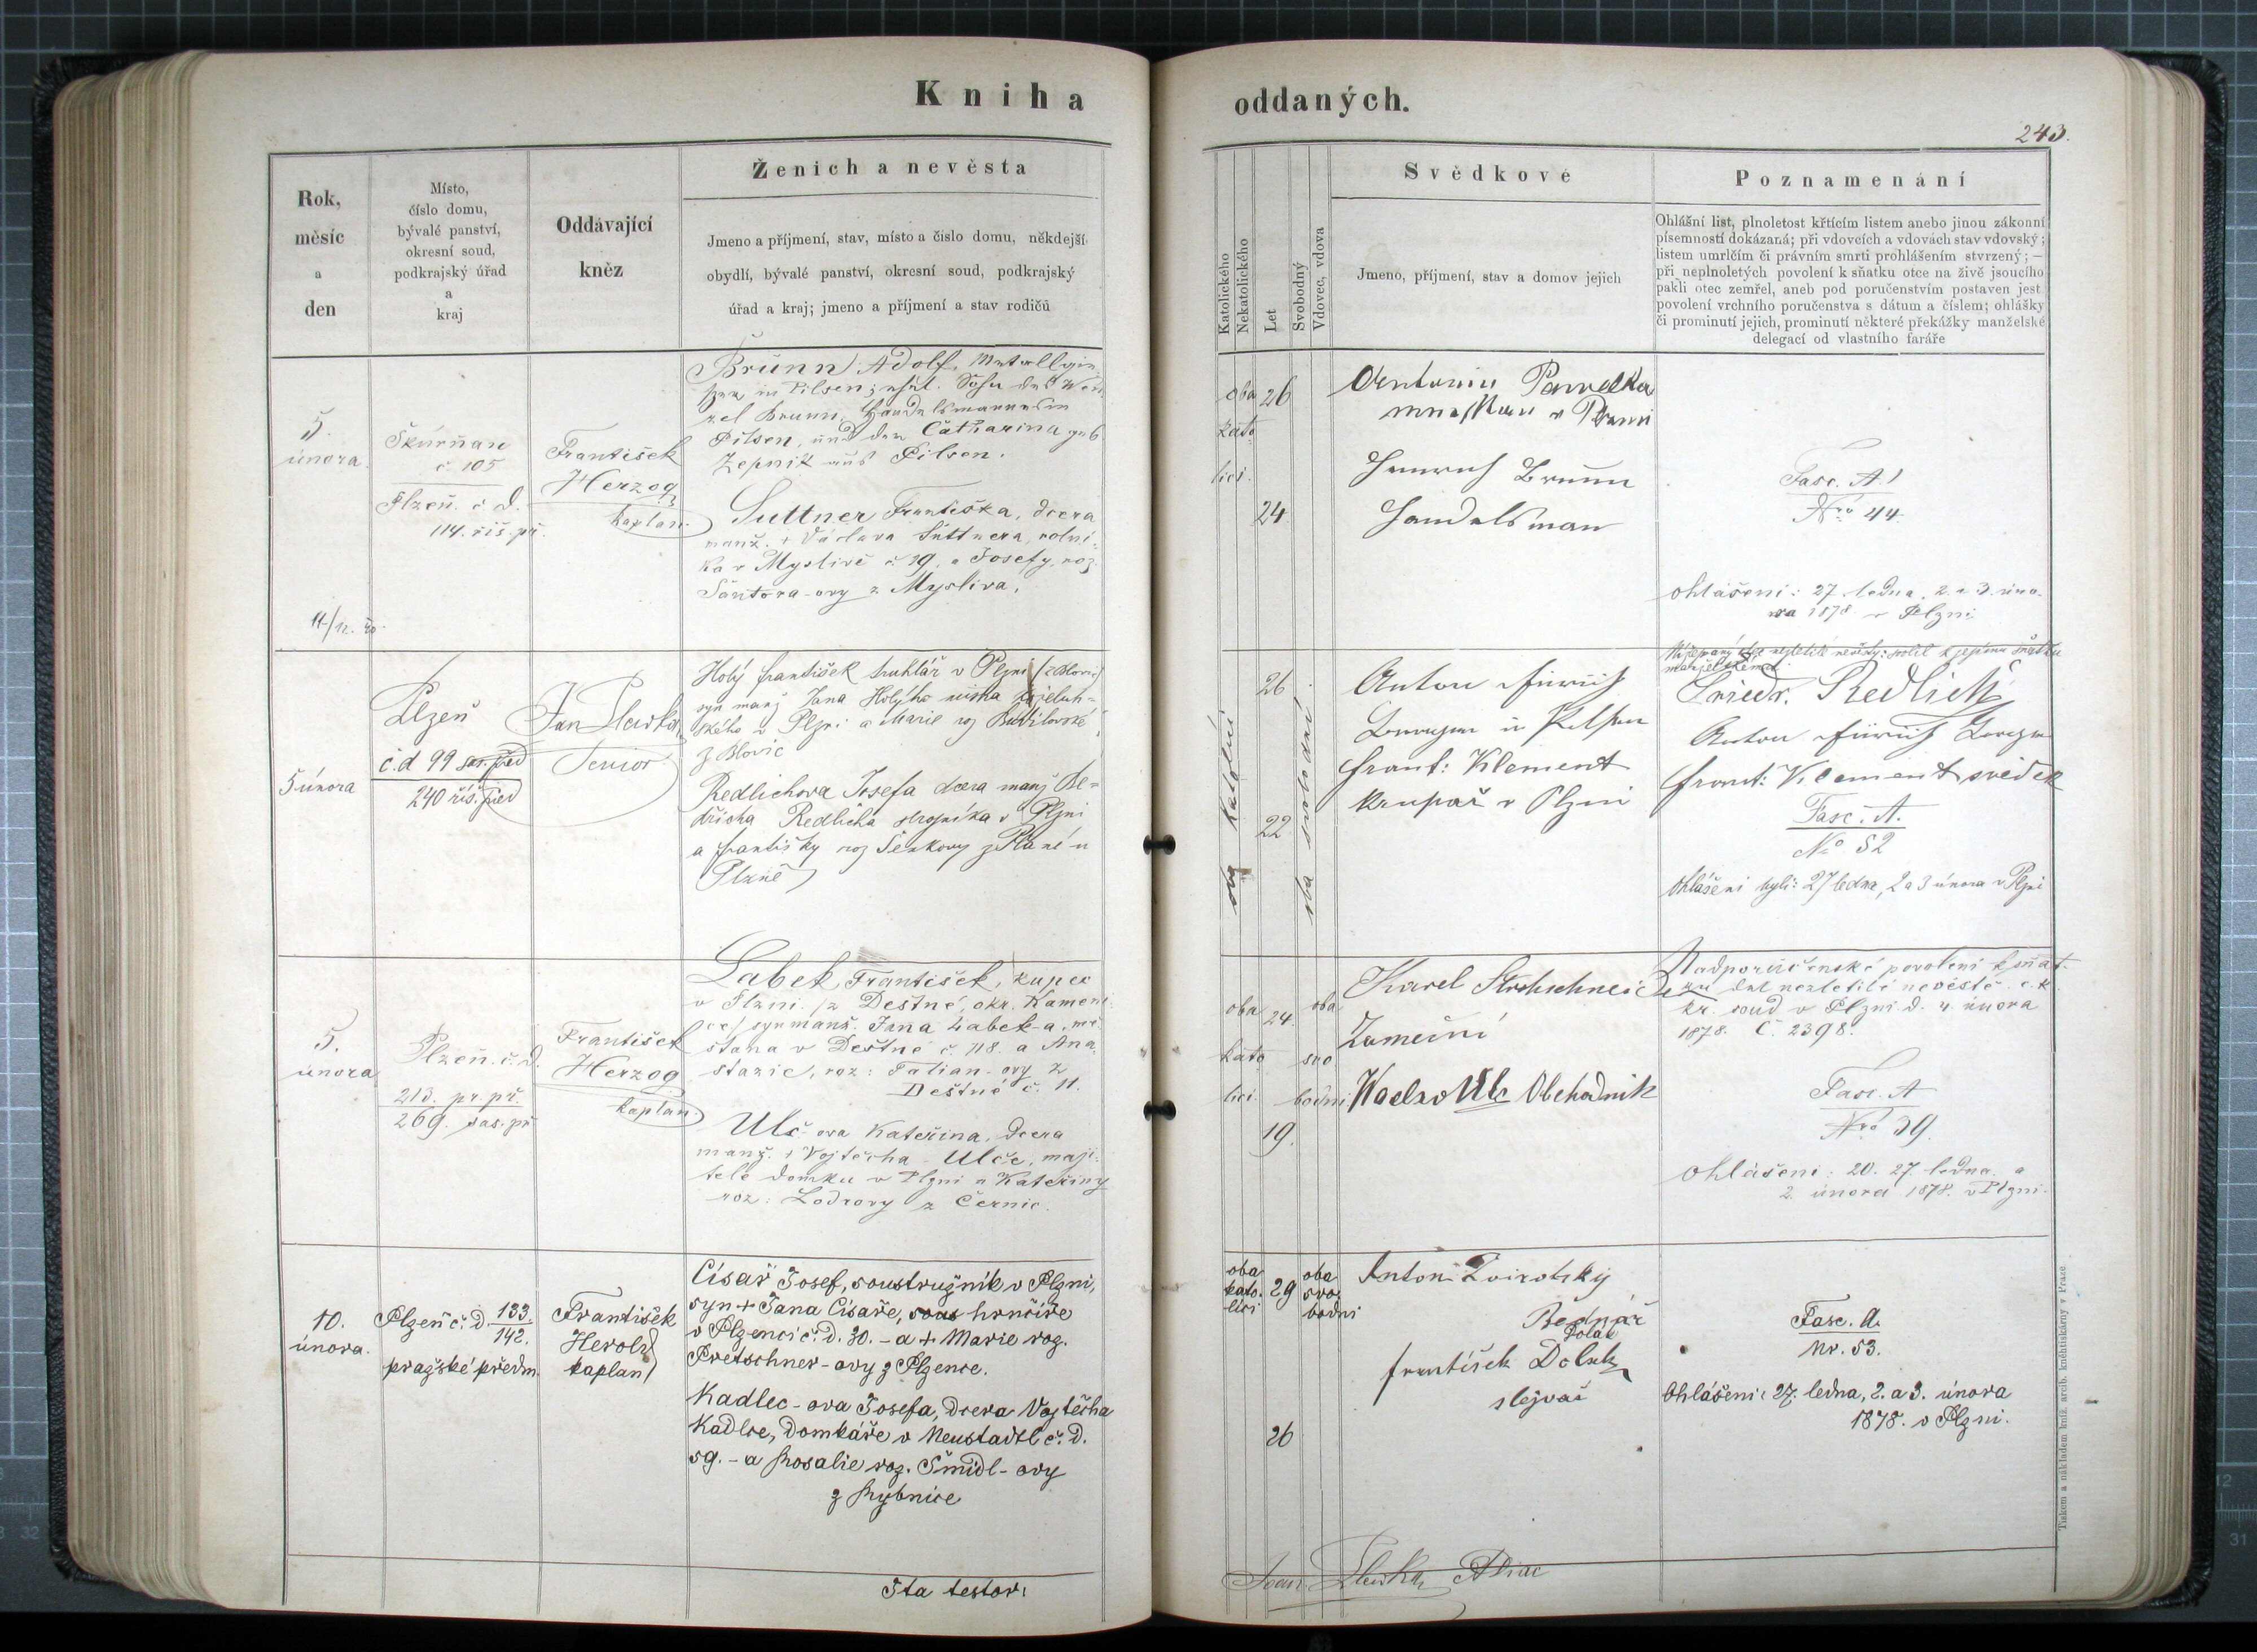 Kniha
oddaných.
243.
Rok,
měsíc
a
den
Místo,
číslo domu,
bývalé panství,
okresní soud,
podkrajský úřad
a
kraj
Oddávající
kněz
Ženich a nevěsta
Jmeno a příjmení, stav, místo a číslo domu, někdejší
obydlí, bývalé panství, okresní soud, podkrajský
úřad a kraj; jmeno a příjmení a stav rodičů
Katolického
Nekatolického
Let
Svobodný
Vdovec, vdova
Svědkové
Jmeno, příjmení, stav a domov jejich
Poznamenání
Ohlášní list, plnoletost křtícím listem anebo jinou zákonní
písemností dokázaná; při vdovcích a vdovách stav vdovský;
listem umrlčím či právním smrti prohlášením stvrzený; —
při neplnoletých povolení k sňatku otce na živě jsoucího
pakli otec zemřel, aneb pod poručenstvím postaven jest
povolení vrchního poručenstva s dátum a číslem; ohlášky
či prominutí jejich, prominutí některé překážky manželské
delegací od vlastního faráře
5.
února.
Škúrňan
č. 105
Plzeň. č d.
114. říš. př.
František
Herzog
kaplan.
Brünn Adolf,
in Pilsen; ehel. Sohn des Wen
zel Brunn, Handelsmannes in
Pilsen, und der Catharina geb
Zepnik aus Pilsen.
Suttner Františka, dcera
manž. + Václava Suttnera, rolní-
ka v Myslivě č. 39, a Josefy, roz.
Šantora-ovy z Mysliva.
oba
kato
lici.
26
24
Antonin Pawelka
Brunn
Handelsman
Fasc. A!
Nro 44.
Ohlášeni: 27. ledna, 2. a 3. úno-
ra 1878 v Plzni.
5 února
Plzeň
č.d 99 sas. před
240 říš. před
Jan Hlavka
Senior
Holý František truhlář v Plzni (z Blovic)
syn manž Jana Holýho
ského v Plzni a Marie roz
z Blovic
Redlichova Josefa dcera manž Be=
dřicha Redlicha strojníka v Plzni
a Františky roz Šenkovy z Plané u
Plzně
oba katolíci
26
22
oba svobodní
Anton
in Pilsen
Frant: Klement
krupař v Plzni
Friedr. Redlich
Anton
Frant: Klement svědek
Fasc. A.
No 52
Ohlášeni byli: 27 ledna, 2 a 3 února v Plzni
5.
února
Plzeň. č. d.
213. pr. př.
269. sas. př
František
Herzog
kaplan
Labek František, kupec
v Plzni, /z Deštné, okr. Kameni
ce/ syn manž. Jana Labek-a, mě
šťana v Deštné č. 118. a Ana
stazie, roz: Fatian-ovy z
Deštné č. 11.
Ulč-ova Kateřina, dcera
manž. + Vojtěcha Ulče, maji-
tele domku v Plzni a Kateřiny
roz: Lodrovy z Černic.
oba
kato
lici.
24.
19.
oba
svo
bodni
Karel Strohschneider
Kameiní
Waclav Ulc Obchodnik
Nadporučenské povolení k sňat-
ku dal nezletilé nevěstě c.k.
kr. soud v Plzni d. 4 února
1878. Č. 2398.
Fasc. A
Nro 39.
Ohlášeni: 20. 27. ledna a
2. února 1878. v Plzni.
10.
února.
Plzeň č. d. 133.
142.
pražské předm.
František
Herold
kaplan
Císař Josef, soustružník v Plzni,
syn + Jana Císaře, hrnčíře
v Plzenci č. d. 30. - a + Marie roz.
Pretschner-ovy z Plzence.
Kadlec-ova Josefa, dcera Vojtěcha
Kadlce, domkáře v Neustadtl č. d.
59. - a Rosalie roz. Šmidl-ovy
z Rybnice
oba
kato-
lici
29
26
oba
svo
bodni
Anton Zvirotsky
Bednář
František Dolak
slejvač
Fasc. A.
Nr. 53.
Ohlášeni: 27. ledna, 2. a 3. února
1878. v Plzni.
Ita testor:
Tiskem a nákladem kníž. arcib. knihtiskárny v Praze